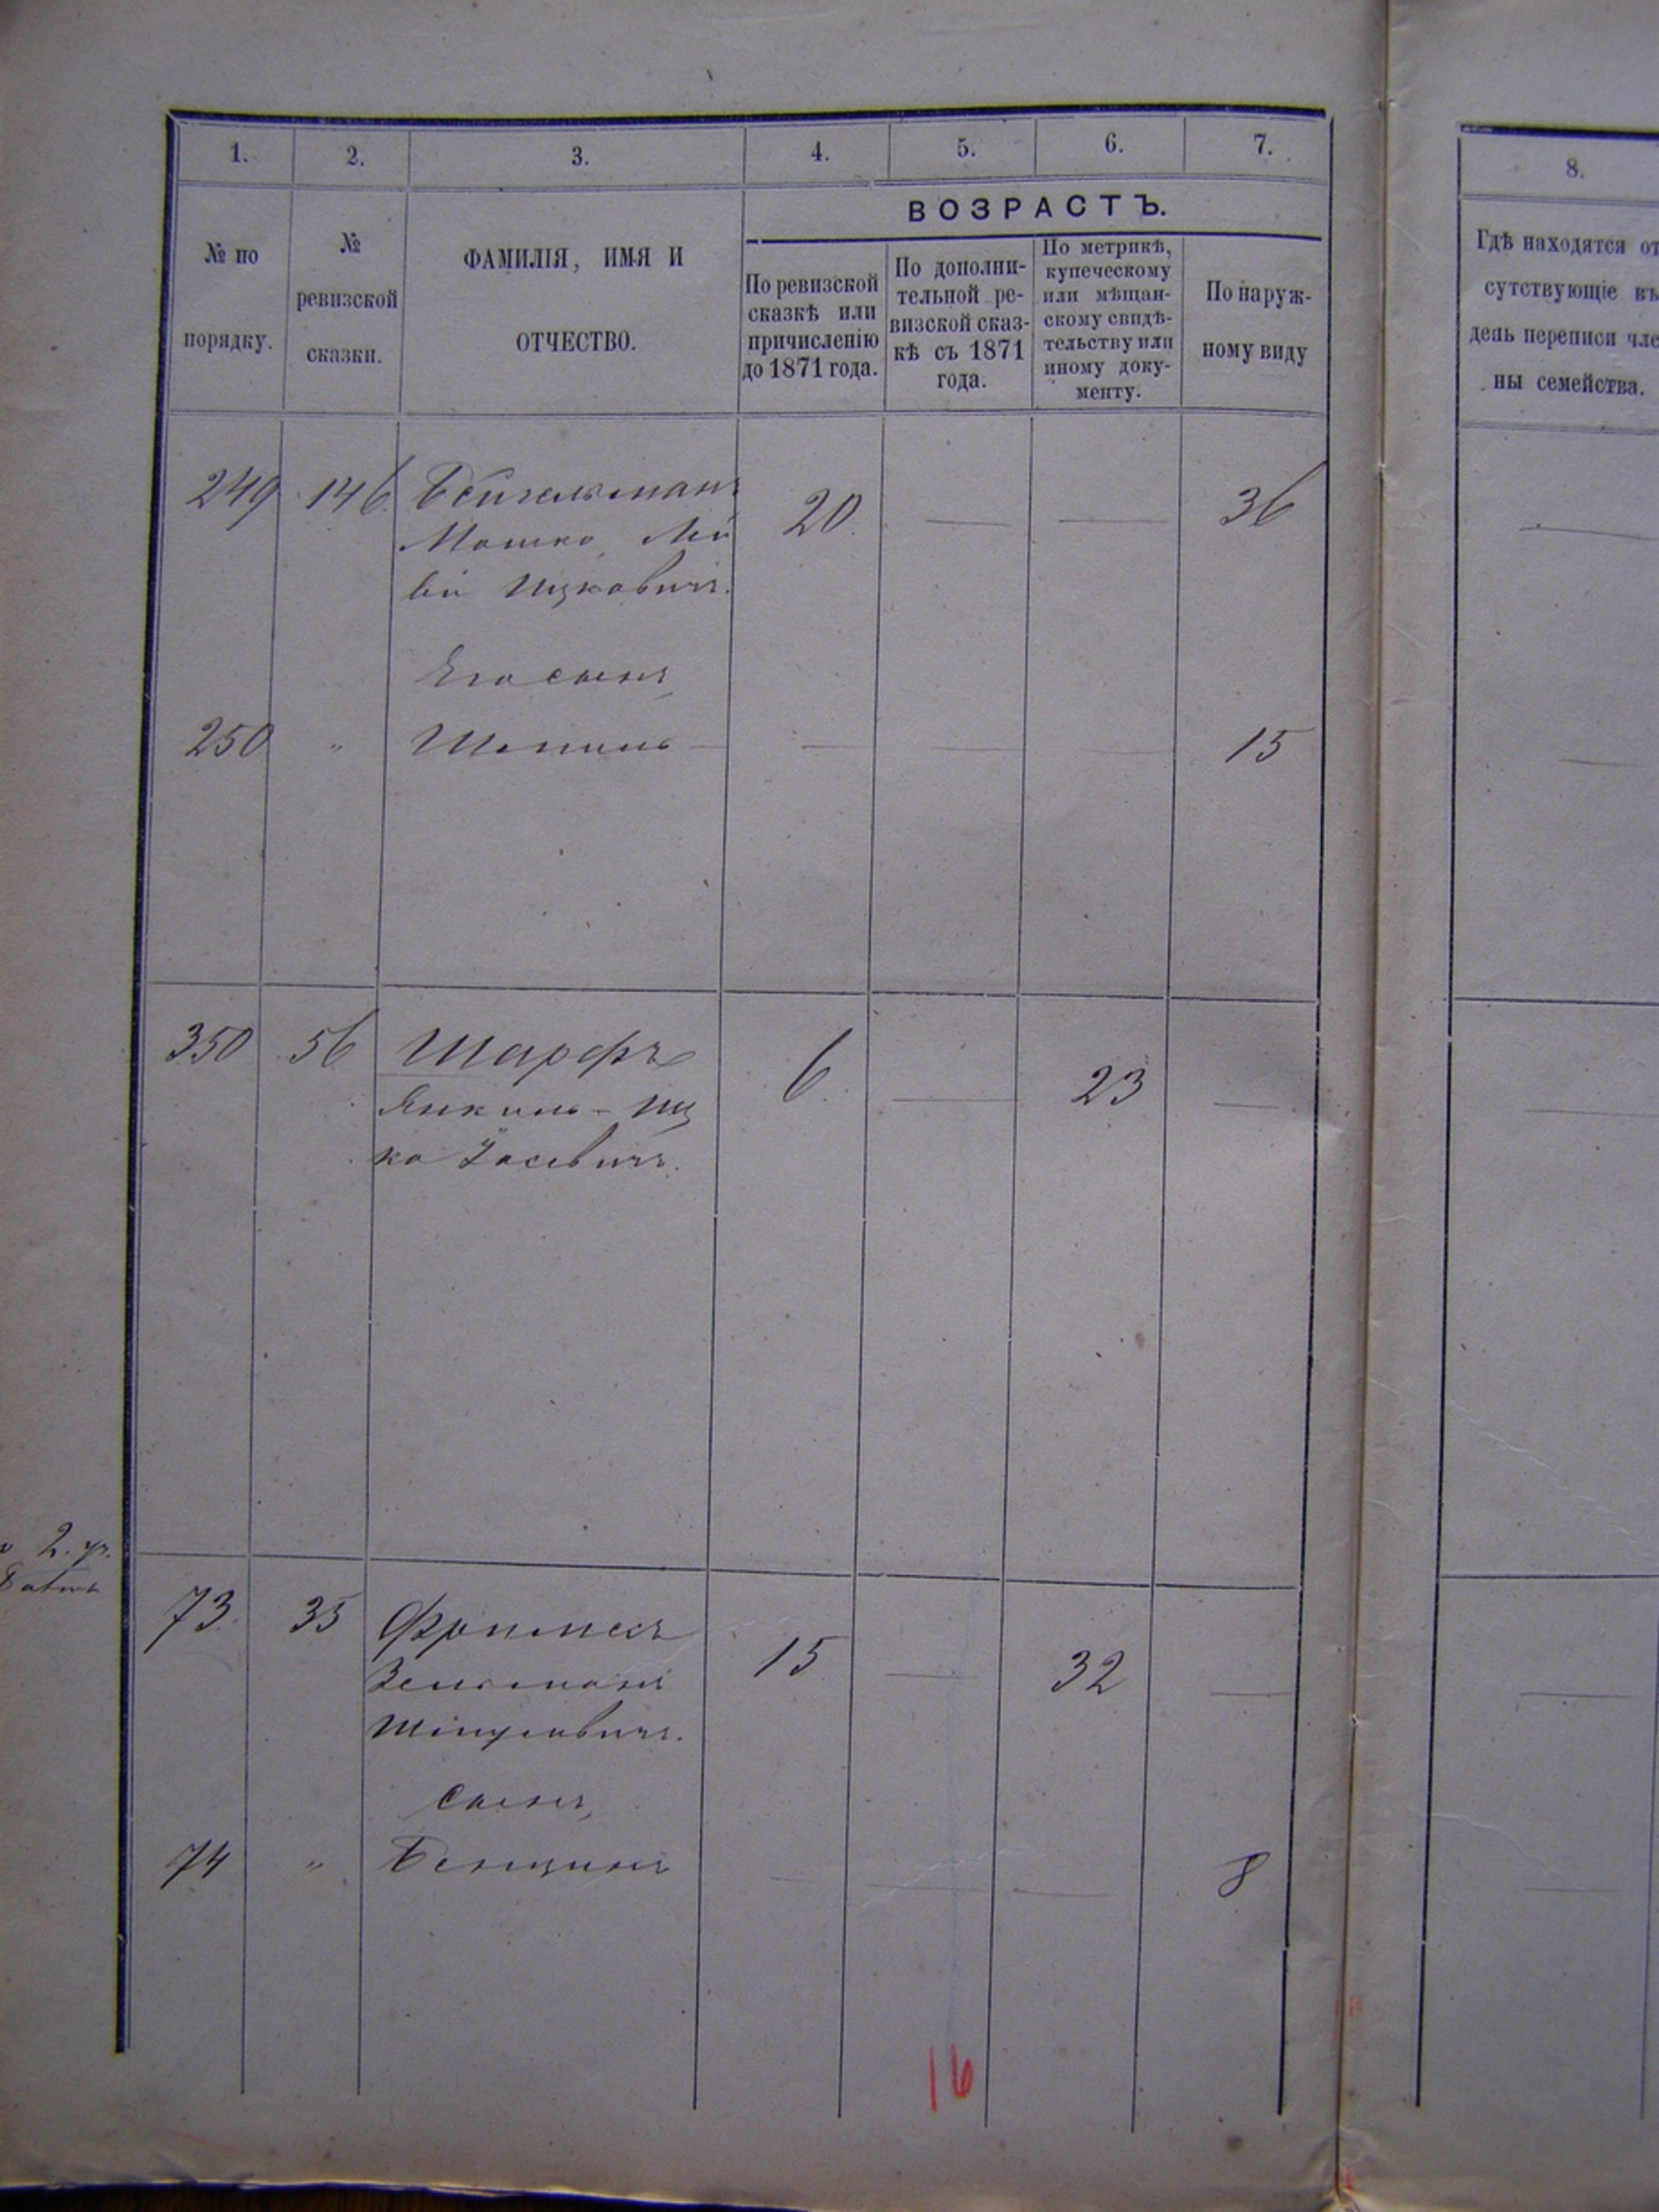 1. 2. 3. 4. 5. 6. 7.
№ по порядку.
№ ревизской сказки.
ФАМИЛІЯ, ИМЯ И
ОТЧЕСТВО.
ВОЗРАСТЪ.
По ревизской
сказкѣ или
причисленію
до 1871 года.
По дополни-
тельной ре-
визской сказ-
кѣ съ 1871
года.
По метрикѣ,
купеческому
или мѣщан-
скому свидѣ-
тельству или
иному доку-
менту.
По наруж-
ному виду
249 146 Бейгельманъ
Мошко Лей 20. — — 36
ба Ицковичъ.
Его сынъ,
250 " Шмиль — — — — 15
350 56 Шарфъ
Янкиль-Иц 6. — 23 —
ко Іосевичъ.
2. уч.
73. 35 Фримесъ
Зельманъ 15 — 32 —
Шмулевичъ.
Сынъ,
74 " Бенционъ — — — 8
16
8.
Гдѣ находятся от
сутствующіе въ
день переписи чле
ны семейства.
—
—
—
—
—